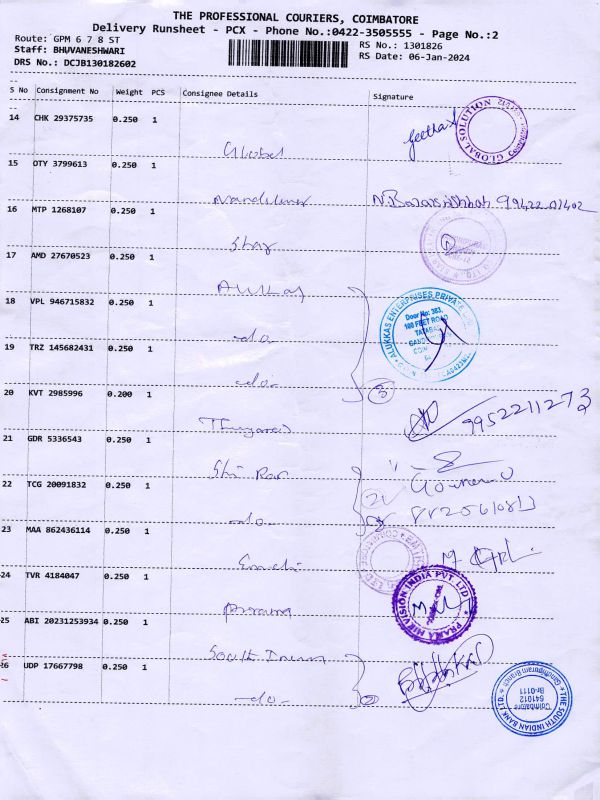 THE PROFESSIONAL COURIERS, COIMBATORE
Delivery Runsheet - PCX - Phone No.:0422-3505555 - Page No.:2
Route: GPM 6 7 8 ST
RS No.: 1301826
Staff: BHUVANESHWARI
RS Date: 06-Jan-2024
DRS No.: DCJB130182602
S No Consignment No Weight PCS Consignee Details Signature
14 CHK 29375735 0.250 1
Global
Geetha
GLOBAL SOLUTION
15 OTY 3799613 0.250 1
16 MTP 1268107 0.250 1
Star
17 AMD 27670523 0.250 1
Alukkas
18 VPL 946715832 0.250 1
-do-
ALUKKAS ENTERPRISES PRIVATE
Door No: 383,
100 FEET ROAD
19 TRZ 145682431 0.250 1
-do-
3
20 KVT 2985996 0.200 1
9952211273
21 GDR 5336543 0.250 1
22 TCG 20091832 0.250 1
-do-
23 MAA 862436114 0.250 1
24 TVR 4184047 0.250 1
HIRVISION INDIA PVT. LTD
25 ABI 20231253934 0.250 1
South Indian
26 UDP 17667798 0.250 1
-do-
2
THE SOUTH INDIAN BANK LTD.
Gandhipuram Branch
Br-0111
641012
Coimbatore